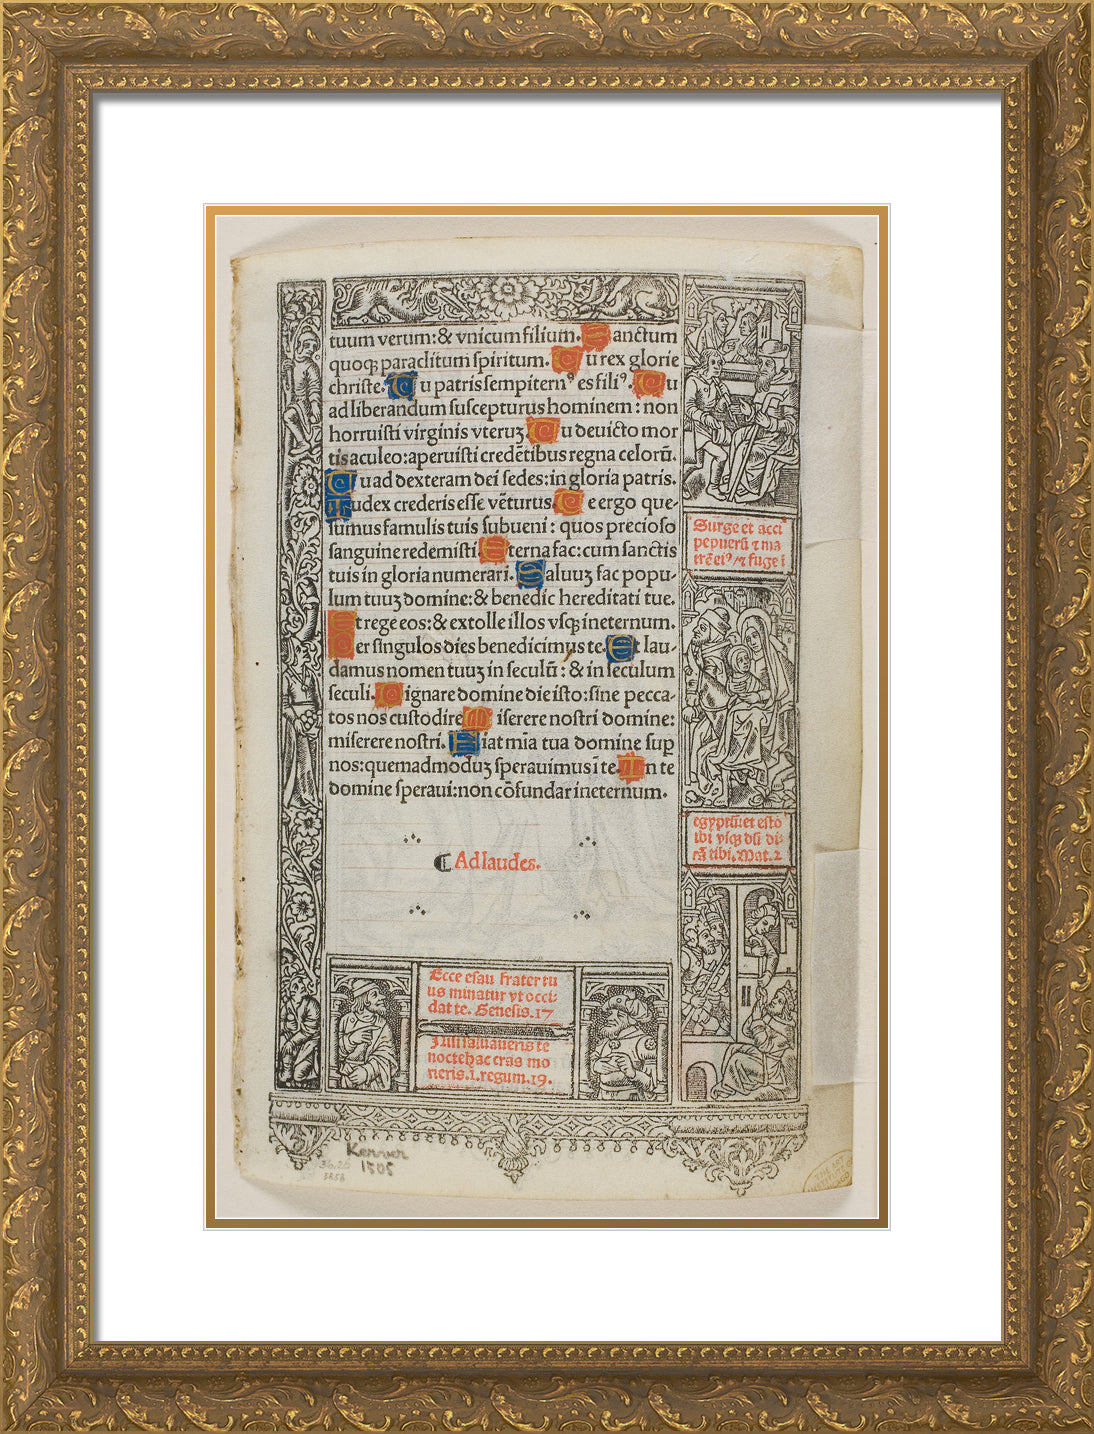 tuum verum: & vnicum filium. Sanctum
quoqꝫ paraclitum spiritum. Tu rex glorie
christe. Tu patris sempiternꝰ es filiꝰ. Tu
ad liberandum suscepturus hominem: non
horruisti virginis vteruꝫ. Tu deuicto mor
tis aculeo: aperuisti credẽtibus regna celorũ.
Tu ad dexteram dei sedes: in gloria patris.
Iudex crederis esse vẽturus. Te ergo que-
sumus famulis tuis subueni: quos precioso
sanguine redemisti. Eterna fac: cum sanctis
tuis in gloria numerari. Saluuꝫ fac popu-
lum tuuꝫ domine: & benedic hereditati tue.
Et rege eos: & extolle illos vsqꝫ in eternum.
Per singulos dies benedicimus te. Et lau-
damus nomen tuuꝫ in seculũ: & in seculum
seculi. Dignare domine die isto: sine pecca-
tos nos custodire. Miserere nostri domine:
miserere nostri. Fiat mĩa tua domine sup
nos: quemadmoduꝫ sperauimus ĩ te. In te
domine speraui: non cõfundar in eternum.
Ad laudes.
Surge et acci
pe puerũ ⁊ ma
trẽ eiꝰ / ⁊ fuge i
egyptũ: et esto
ibi vsqꝫ dũ di-
cã tibi. Mat. 2
Ecce esau frater tu
us minatur vt occi-
dat te. Genesis. 17
Nisi saluaueris te
nocte hac cras mo
rieris. 1. regum. 19.
Kerver
1505